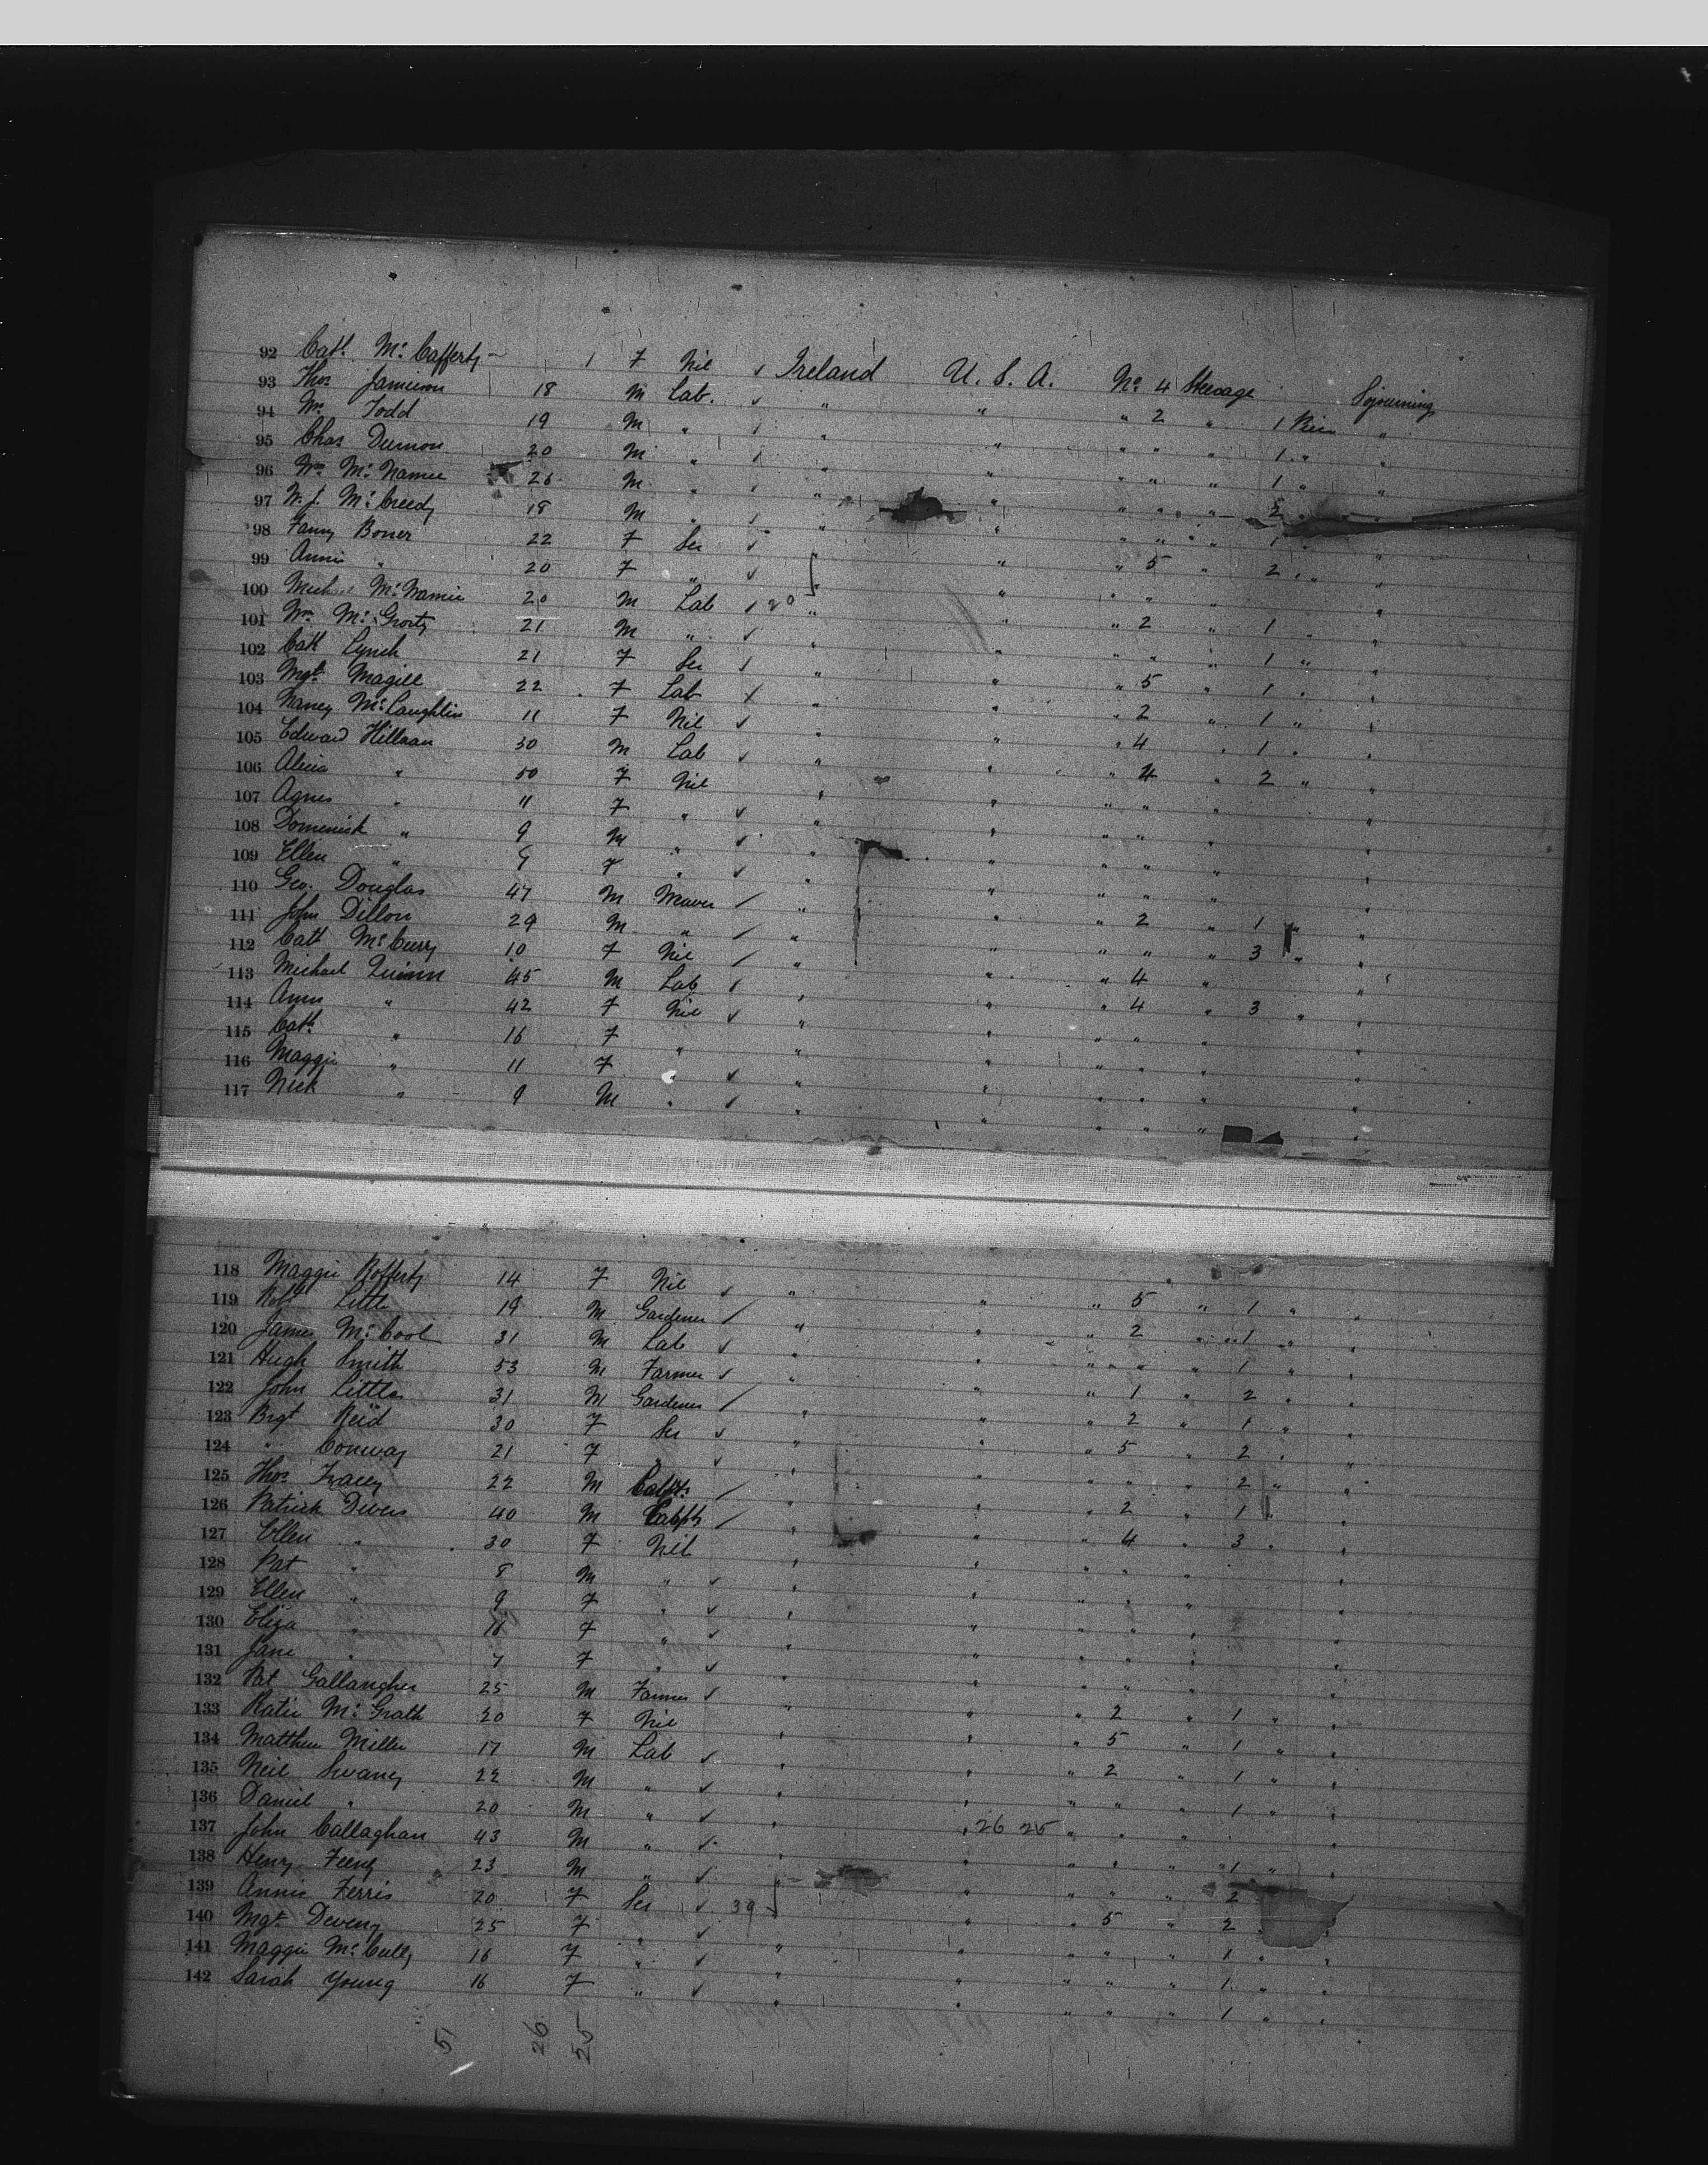 92 Cath. Mc. Cafferty 1 F Nil Ireland U.S.A. No. 4 Steerage Sojourning
93 Thos Jamieson 18 M Lab. " " " 2 " 1 "
94 Wm. Todd 19 M " " " " " " 1 " "
95 Chas 20 M " " " " " " 1 " "
96 Wm Mc. Namee 26 M " " " " " " 2 "
97 W. J. Mc. Creedy 18 M " " " " " " 1 " "
98 Fanny Boner 22 F Ser " " " 5 " 2 " "
99 Annie " 20 F " " " " " " "
100 Michael Mc. Namee 20 M Lab 20 " " " 2 " 1 " "
101 Wm. Mc. Grorty 21 M " " " " " " 1 " "
102 Cath Lynch 21 F Ser " " " 5 " 1 " "
103 Mgt. Magill 22 F Lab " " " 2 " 1 " "
104 Nancy Mc. Laughlin 11 F Nil " " " 4 " 1 " "
105 Edward Hillman 30 M Lab " " " 4 " 2 " "
106 Alice " 50 F Nil " " " " " "
107 Agnes " 11 F " " " " " " "
108 Domenick " 9 M " " " " " " "
109 Ellen " 9 F " " " " " " "
110 Geo. Douglas 47 M " " " 2 " 1 " "
111 John Dillon 29 M " " " " " " 3 " "
112 Cath Mc. Curry 10 F Nil " " " 4 " "
113 Michael Quinn 45 M Lab " " " 4 " 3 " "
114 Ann " 42 F Nil " " " " " "
115 Cath " 16 F " " " " " " "
116 Maggie " 11 F " " " " " " "
117 Nick " 9 M " " " " " " "
118 Maggie Rofferty 14 F Nil " " " 5 " 1 " "
119 Robt Little 19 M Gardener " " " 2 " 1 " "
120 James Mc. Cool 31 M Lab " " " " " 1 " "
121 Hugh Smith 53 M Farmer " " " 1 " 2 " "
122 John Little 31 M Gardener " " " 2 " 1 " "
123 Brgt Reid 30 F Ser " " " 5 " 2 " "
124 " Conway 21 F " " " " " " 2 " "
125 Thos Tracey 22 M " " " 2 " 1 " "
126 Patrick Devers 40 M " " " 4 " 3 " "
127 Ellen " 30 F Nil " " " " " "
128 Pat " 8 M " " " " " " "
129 Ellen " 9 F " " " " " " "
130 Eliza " F " " " " " " "
131 Jane " 7 F " " " " " " "
132 Pat Gallangher 25 M Farmer " " " 2 " 1 " "
133 Katie Mc. Grath 20 F Nil " " " 5 " 1 " "
134 Matthew Miller 17 M Lab " " " 2 " 1 " "
135 Neil Swaney 22 M " " " " " " 1 " "
136 Daniel " 20 M " " " 26 25 " " " "
137 John Callaghan 43 M " " " " " " 1 " "
138 Henry Feeny 23 M " " " " " 2
139 Annie Ferris 20 F Ser 39 " " 5 " 2 "
140 Mgt. Deveny 25 F " " " " " " 1 " "
141 Maggie Mc. Cully 16 F " " " " " " 1 " "
142 Sarah Young 16 F " " " " " " 1 " "
51 26 25